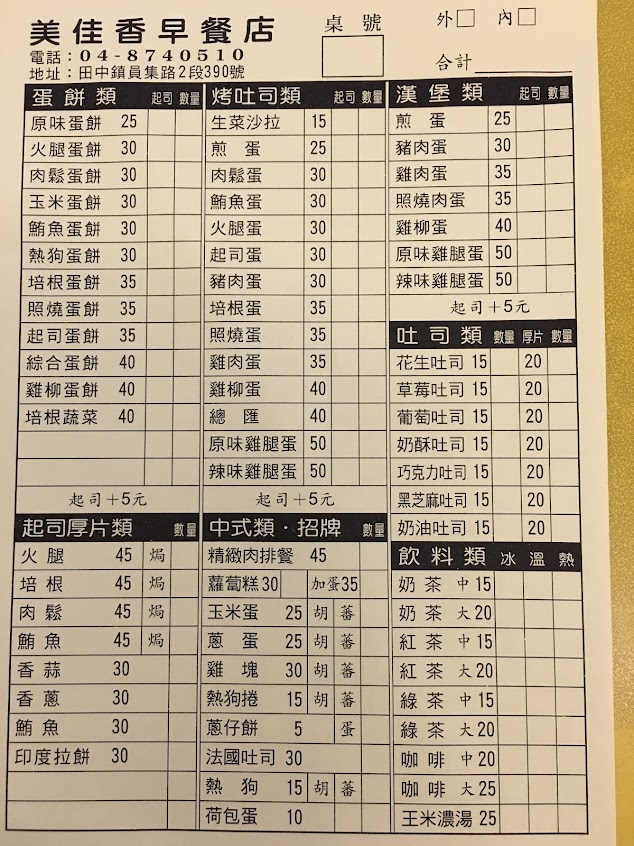 美佳香早餐店
電話：04-8740510
地址：田中鎮員集路2段390號
桌號
外□ 內□
合計
蛋餅類 起司 數量
原味蛋餅 25
火腿蛋餅 30
肉鬆蛋餅 30
玉米蛋餅 30
鮪魚蛋餅 30
熱狗蛋餅 30
培根蛋餅 35
照燒蛋餅 35
起司蛋餅 35
綜合蛋餅 40
雞柳蛋餅 40
培根蔬菜 40
起司+5元
起司厚片類 數量
火腿 45 焗
培根 45 焗
肉鬆 45 焗
鮪魚 45 焗
香蒜 30
香蔥 30
鮪魚 30
印度拉餅 30
烤吐司類 起司 數量
生菜沙拉 15
煎蛋 25
肉鬆蛋 30
鮪魚蛋 30
火腿蛋 30
起司蛋 30
豬肉蛋 30
培根蛋 35
照燒蛋 35
雞肉蛋 35
雞柳蛋 40
總匯 40
原味雞腿蛋 50
辣味雞腿蛋 50
起司+5元
中式類·招牌 數量
精緻肉排餐 45
蘿蔔糕30 加蛋35
玉米蛋 25 胡 蕃
蔥蛋 25 胡 蕃
雞塊 30 胡 蕃
熱狗捲 15 胡 蕃
蔥仔餅 5 蛋
法國吐司 30
熱狗 15 胡 蕃
荷包蛋 10
漢堡類 起司 數量
煎蛋 25
豬肉蛋 30
雞肉蛋 35
照燒肉蛋 35
雞柳蛋 40
原味雞腿蛋 50
辣味雞腿蛋 50
起司+5元
吐司類 數量 厚片 數量
花生吐司 15 20
草莓吐司 15 20
葡萄吐司 15 20
奶酥吐司 15 20
巧克力吐司 15 20
黑芝麻吐司 15 20
奶油吐司 15 20
飲料類 冰 溫 熱
奶茶 中 15
奶茶 大 20
紅茶 中 15
紅茶 大 20
綠茶 中 15
綠茶 大 20
咖啡 中 20
咖啡 大 25
玉米濃湯 25